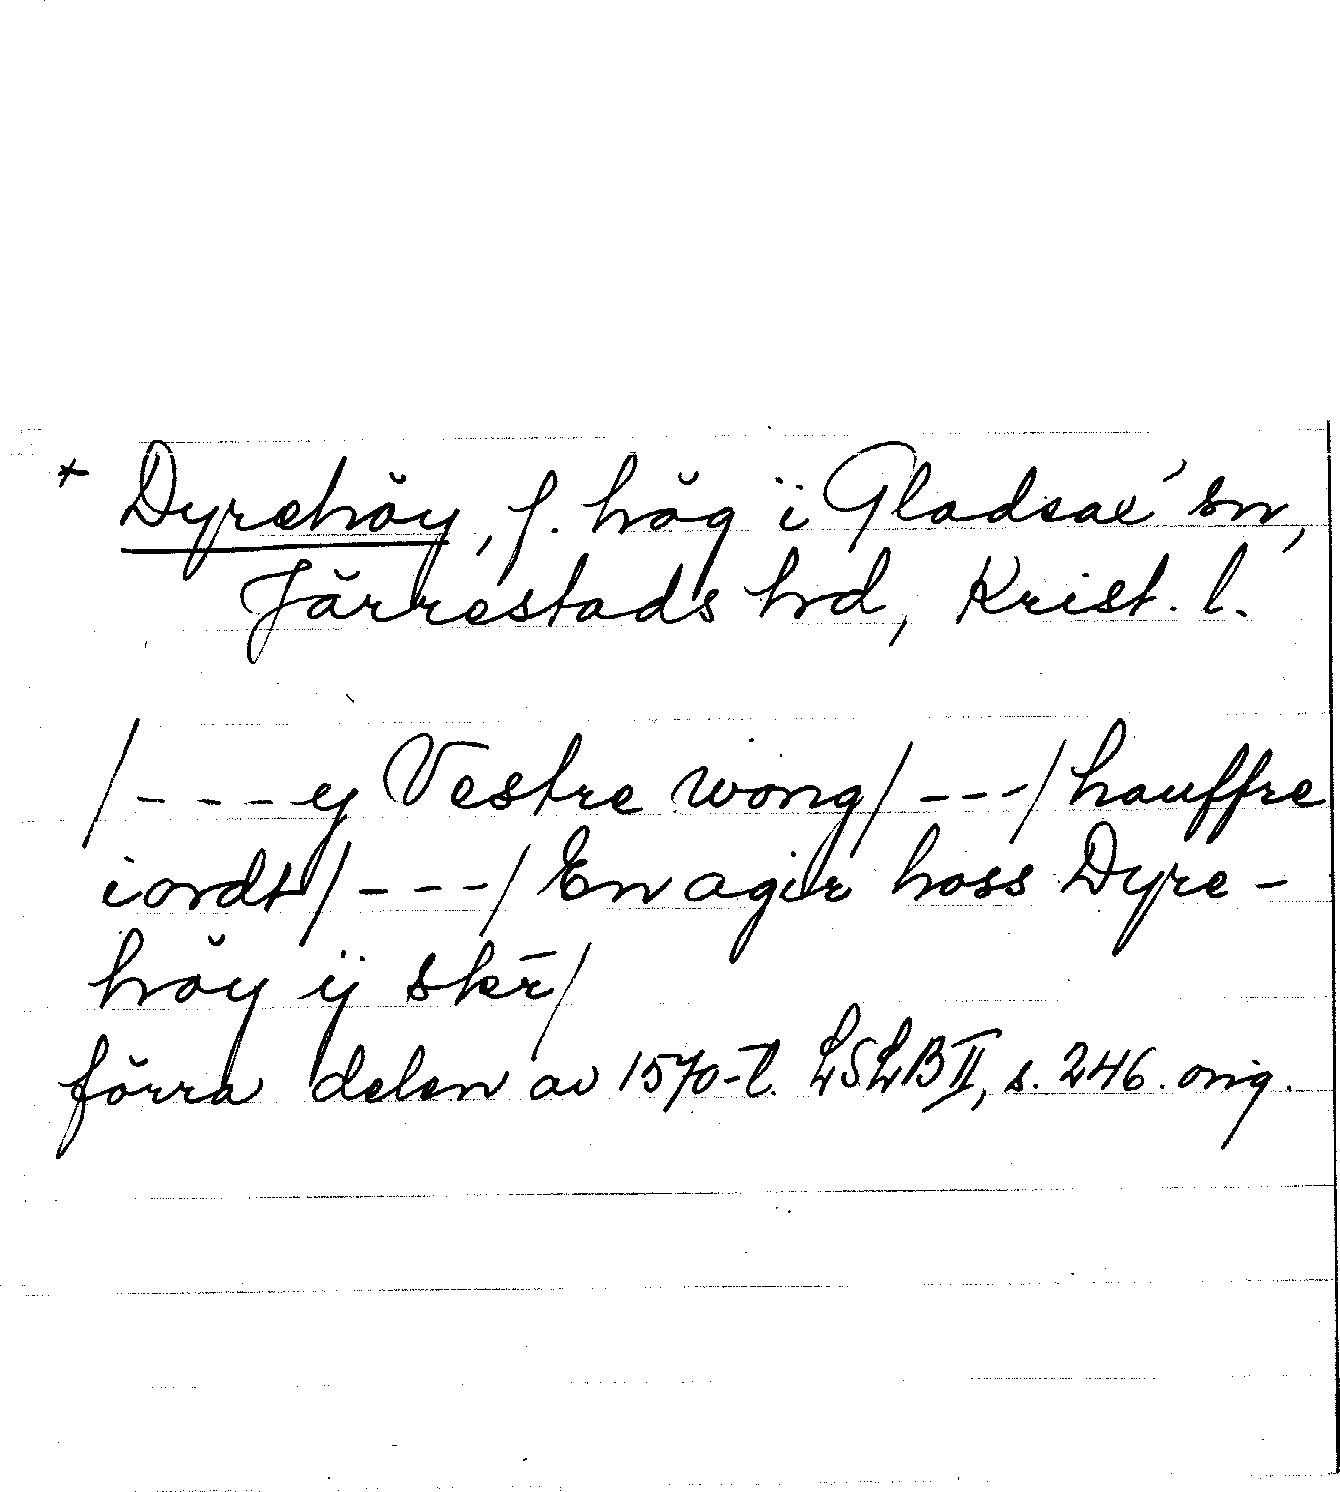 * Dyrehöy, f. hög i Gladsax' sn,
Järrestads hrd, Krist. l.
/---y Vestre wong/---/hauffre
iordt/---/En agir hoss Dyre-
höy ÿ skr̄/
förra delen av 1570-t. LSLB II, s. 246. orig.